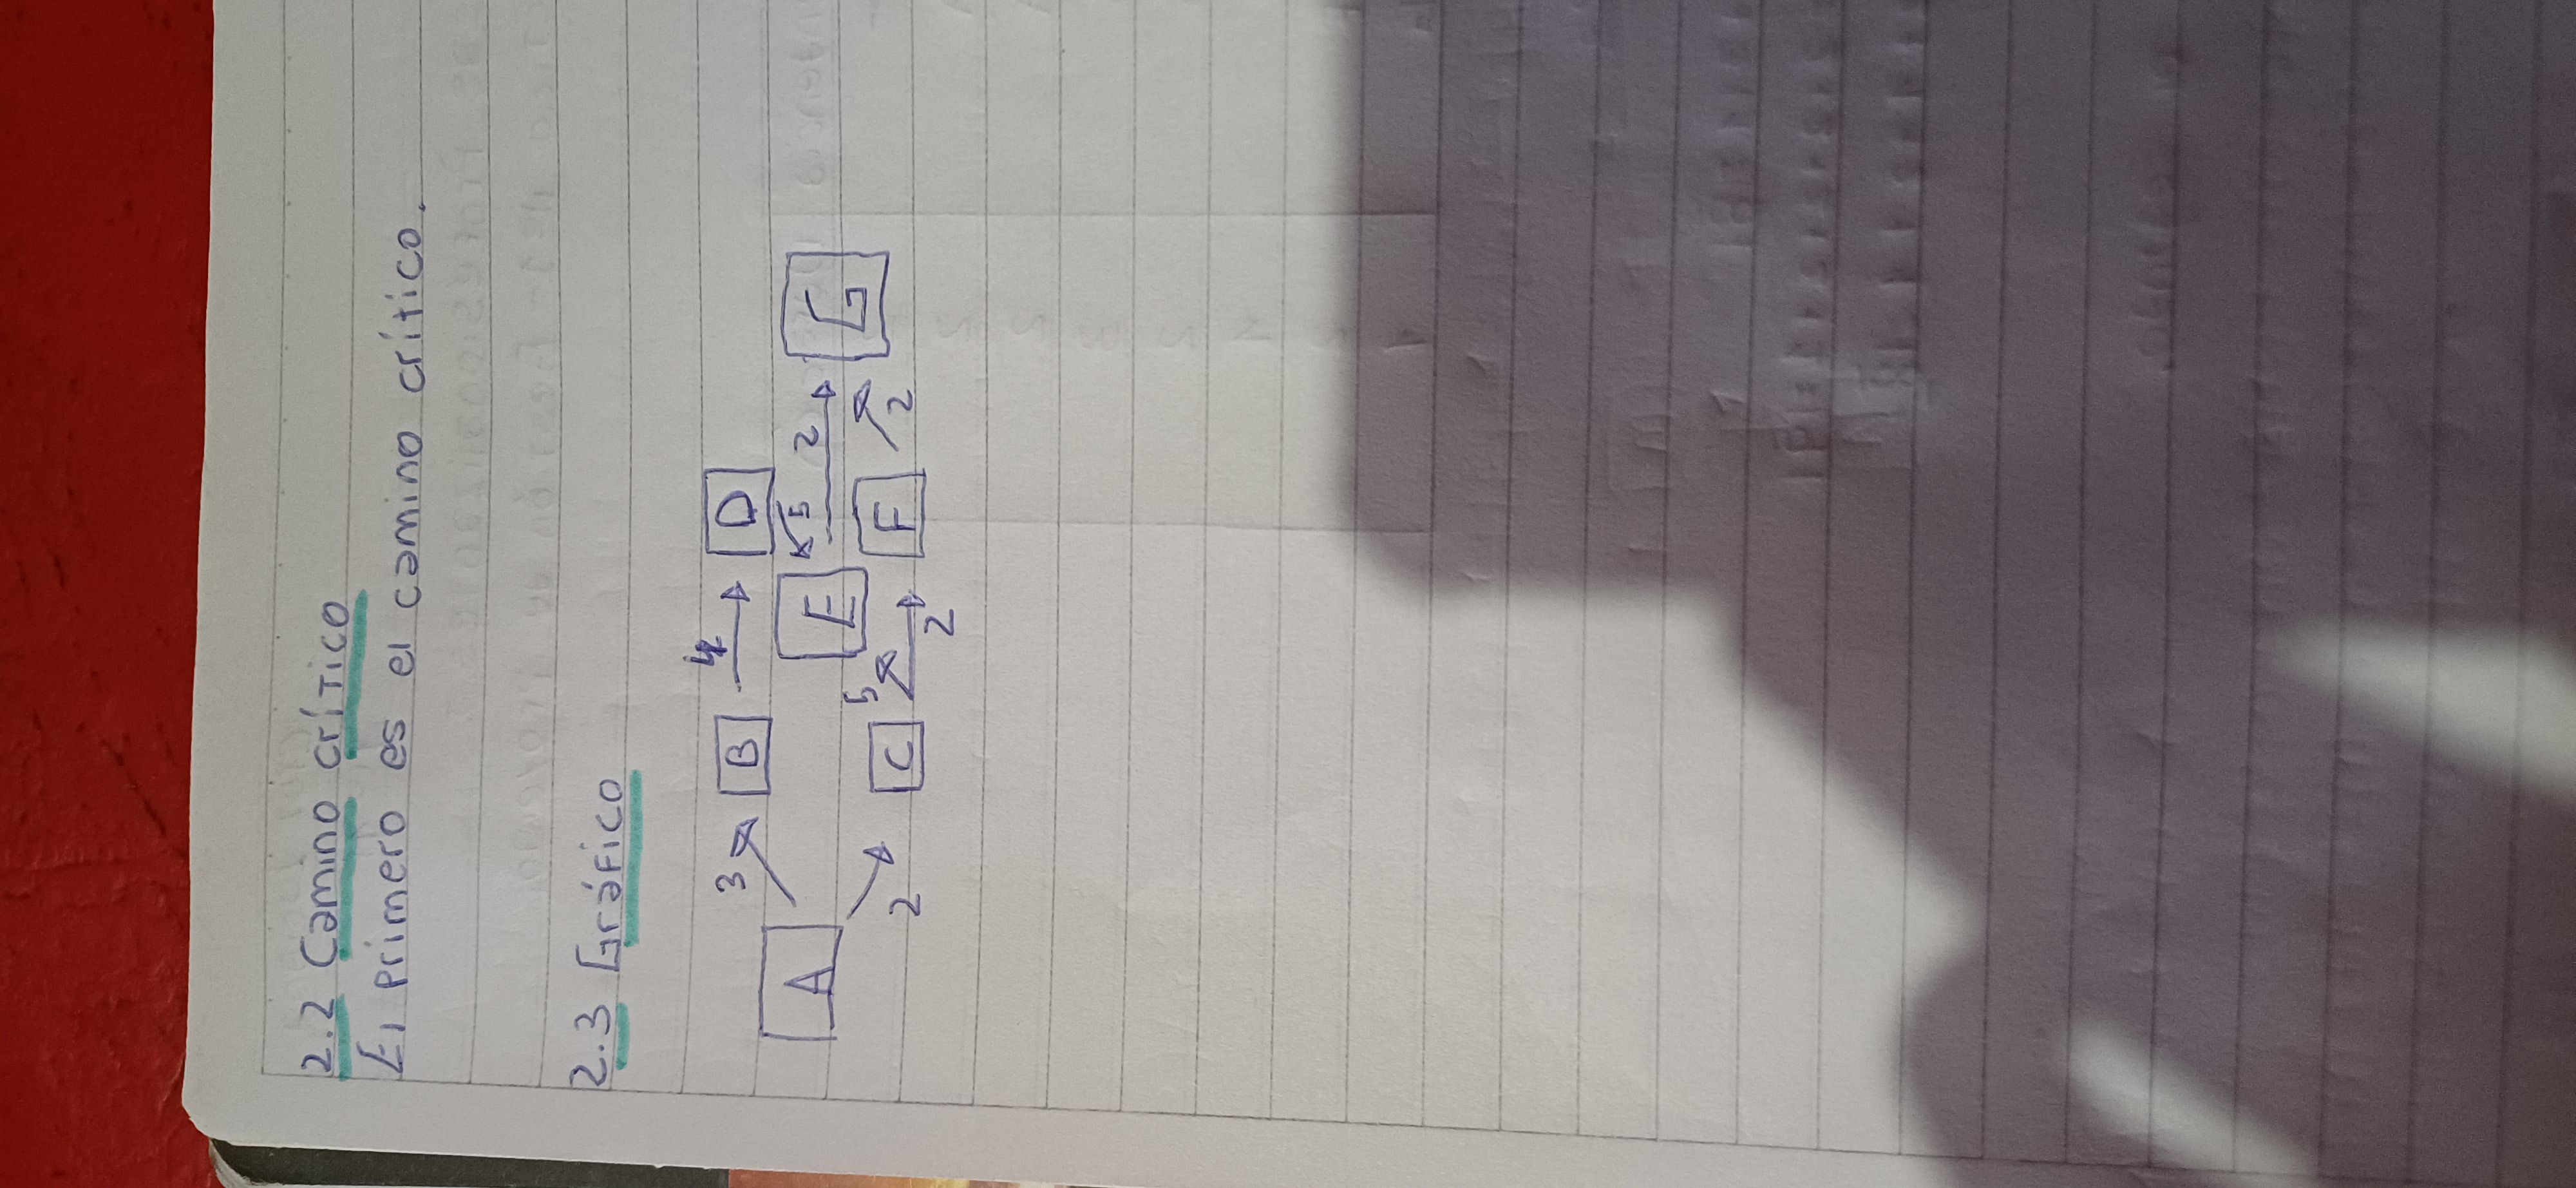 2.2 Camino crítico
El primero es el camino crítico.
2.3 Gráfico
3 B 4 D
A E 5 2 G
2 C 5 2 F 2